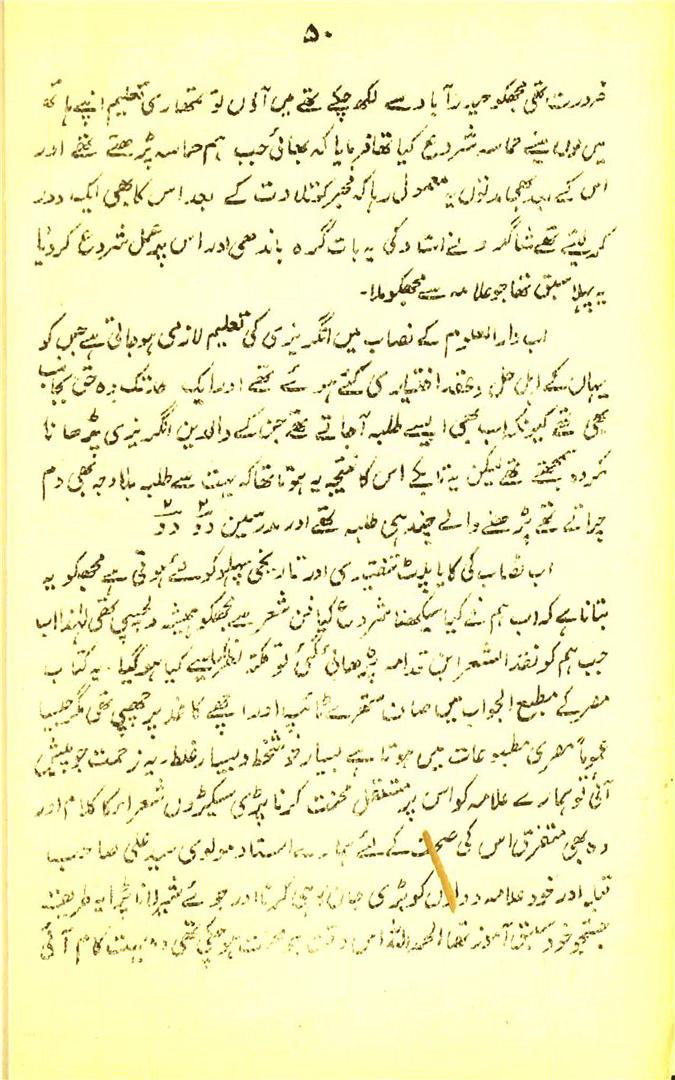 ۵۰
ضرورت تھی مجھکو حیدرآباد سے لکھ چکے تھے میں آؤں تو تمھاری تعلیم اپنے ہاتھ
میں لوں مینے حماسہ شروع کیا تھا فرمایا کہ بھائی جب ہم حماسہ پڑھتے تھے اور
اس کے بعد بھی مدتوں یہ معمول رہا کہ فجر کو تلاوت کے بعد اس کا بھی ایک دور
کر لیتے تھے شاگرد نے استاد کی یہ بات گرہ باندھی اور اس پر عمل شروع کر دیا
یہ پہلا سبق تھا جو علامہ سے مجھکو ملا۔
اب دارالعلوم کے نصاب میں انگریزی کی تعلیم لازمی ہو جاتی ہے جس کو
یہاں کے اہل حل و عقد اختیاری کئے ہوئے تھے اور ایک حد تک وہ حق بجانب
بھی تھے کیونکہ اب بھی ایسے طلبہ آجاتے تھے جن کے والدین انگریزی پڑھانا
مکروہ سمجھتے تھے لیکن یہ تابکے اس کا نتیجہ یہ ہوتا تھا کہ بہت سے طلبہ بلا وجہ بھی دم
چراتے تھے پڑھنے والے چند ہی طلبہ تھے اور مدرسین دو دو
اب نصاب کی کایا پلٹ تنقیدی اور تاریخی پہلو کو لئے ہوتی ہے مجھ کو یہ
بتانا ہے کہ اب ہم نے کیا سیکھنا شروع کیا فن شعر سے مجھکو ہمیشہ دلچسپی تھی لہٰذا اب
جب ہم کو نقد الشعر ابن قدامہ پڑھائی گئی تو نکتہ نظر ہی کیا سے کیا ہو گیا۔ یہ کتاب
مصر کے مطبع الجواب میں صاف ستھرے ٹائپ اور اچھے کاغذ پر چھپی تھی مگر جیسا
عموماً مصری مطبوعات میں ہوتا ہے بسیار خوشخط و بسیار غلط یہ زحمت جو پیش
آئی تو ہمارے علامہ کو اس پر مستقل محنت کرنا پڑی سیکڑوں شعراء کا کلام اور
وہ بھی متفرق اس کی صحت کے لئے ہمارے استاد مولوی سید علی صاحب
قبلہ اور خود علامہ دونوں کو بڑی جان توہی کرنا اور جوئے شیر لانا پڑا یہ طریقۂ
جستجو خود سبق آموز تھا الحمد للہ اس وقت جو محنت ہو چکی تھی وہ بہت کام آئی